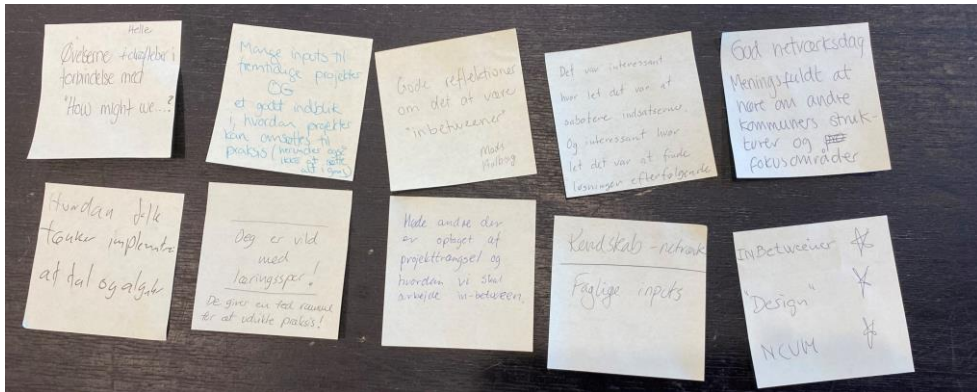 Helle
Øvelserne + skabeloner i
forbindelse med
"How might we...?"
Mange inputs til
fremtidige projekter
OG
et godt indblik
i, hvordan projekter
kan omsættes til
praksis (herunder også
ikke at sætte
alt i gang)
Gode reflektioner
om det at være
"inbetweener"
Mads
Det var interessant
hvor let det var at
indsatserne.
Og interessant hvor
let det var at finde
løsninger efterfølgende
God netværksdag
Meningsfuldt at
høre om andre
kommuners struk-
turer og
fokusområder
Hvordan folk
tænker
af tal og
Jeg er vild
med
læringsspor!
De giver en fed ramme
for at udvikle praksis!
Møde andre der
er optaget af
projekttrængsel og
hvordan vi skal
arbejde in-between.
Kendskab - netværk
Faglige inputs
InBetweener
"Design"
NCUM